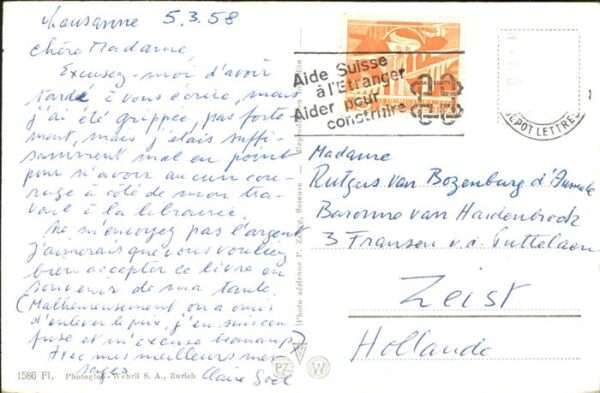 Lausanne 5.3.58
Chère Madame,
Excusez-moi d'avoir
tardé à vous écrire, mais
j'ai été grippée, pas forte
ment, mais j'étais suffi-
samment mal en point
pour n'avoir aucun cou-
rage à côté de mon tra-
vail à la librairie.
Ne m'envoyez pas l'argent
j'aimerais que vous vouliez
bien accepter ce livre en
souvenir de ma tante.
(Malheureusement, on a omis
d'enlever le prix, j'en suis con-
fuse et m'excuse beaucoup)
Avec mes meilleurs mes-
sages Claire
1586 Fl. Photoglob-Wehrli S. A., Zurich
(Photo aérienne P.
PZ W
Aide Suisse
à l'Etranger
Aider pour
construire
DEPOT LETTRE
Madame
Rutgers van Rozenburg d'
Baronne van Hardenbroek
3 Fransen v.d. Puttelaan
Zeist
Hollande